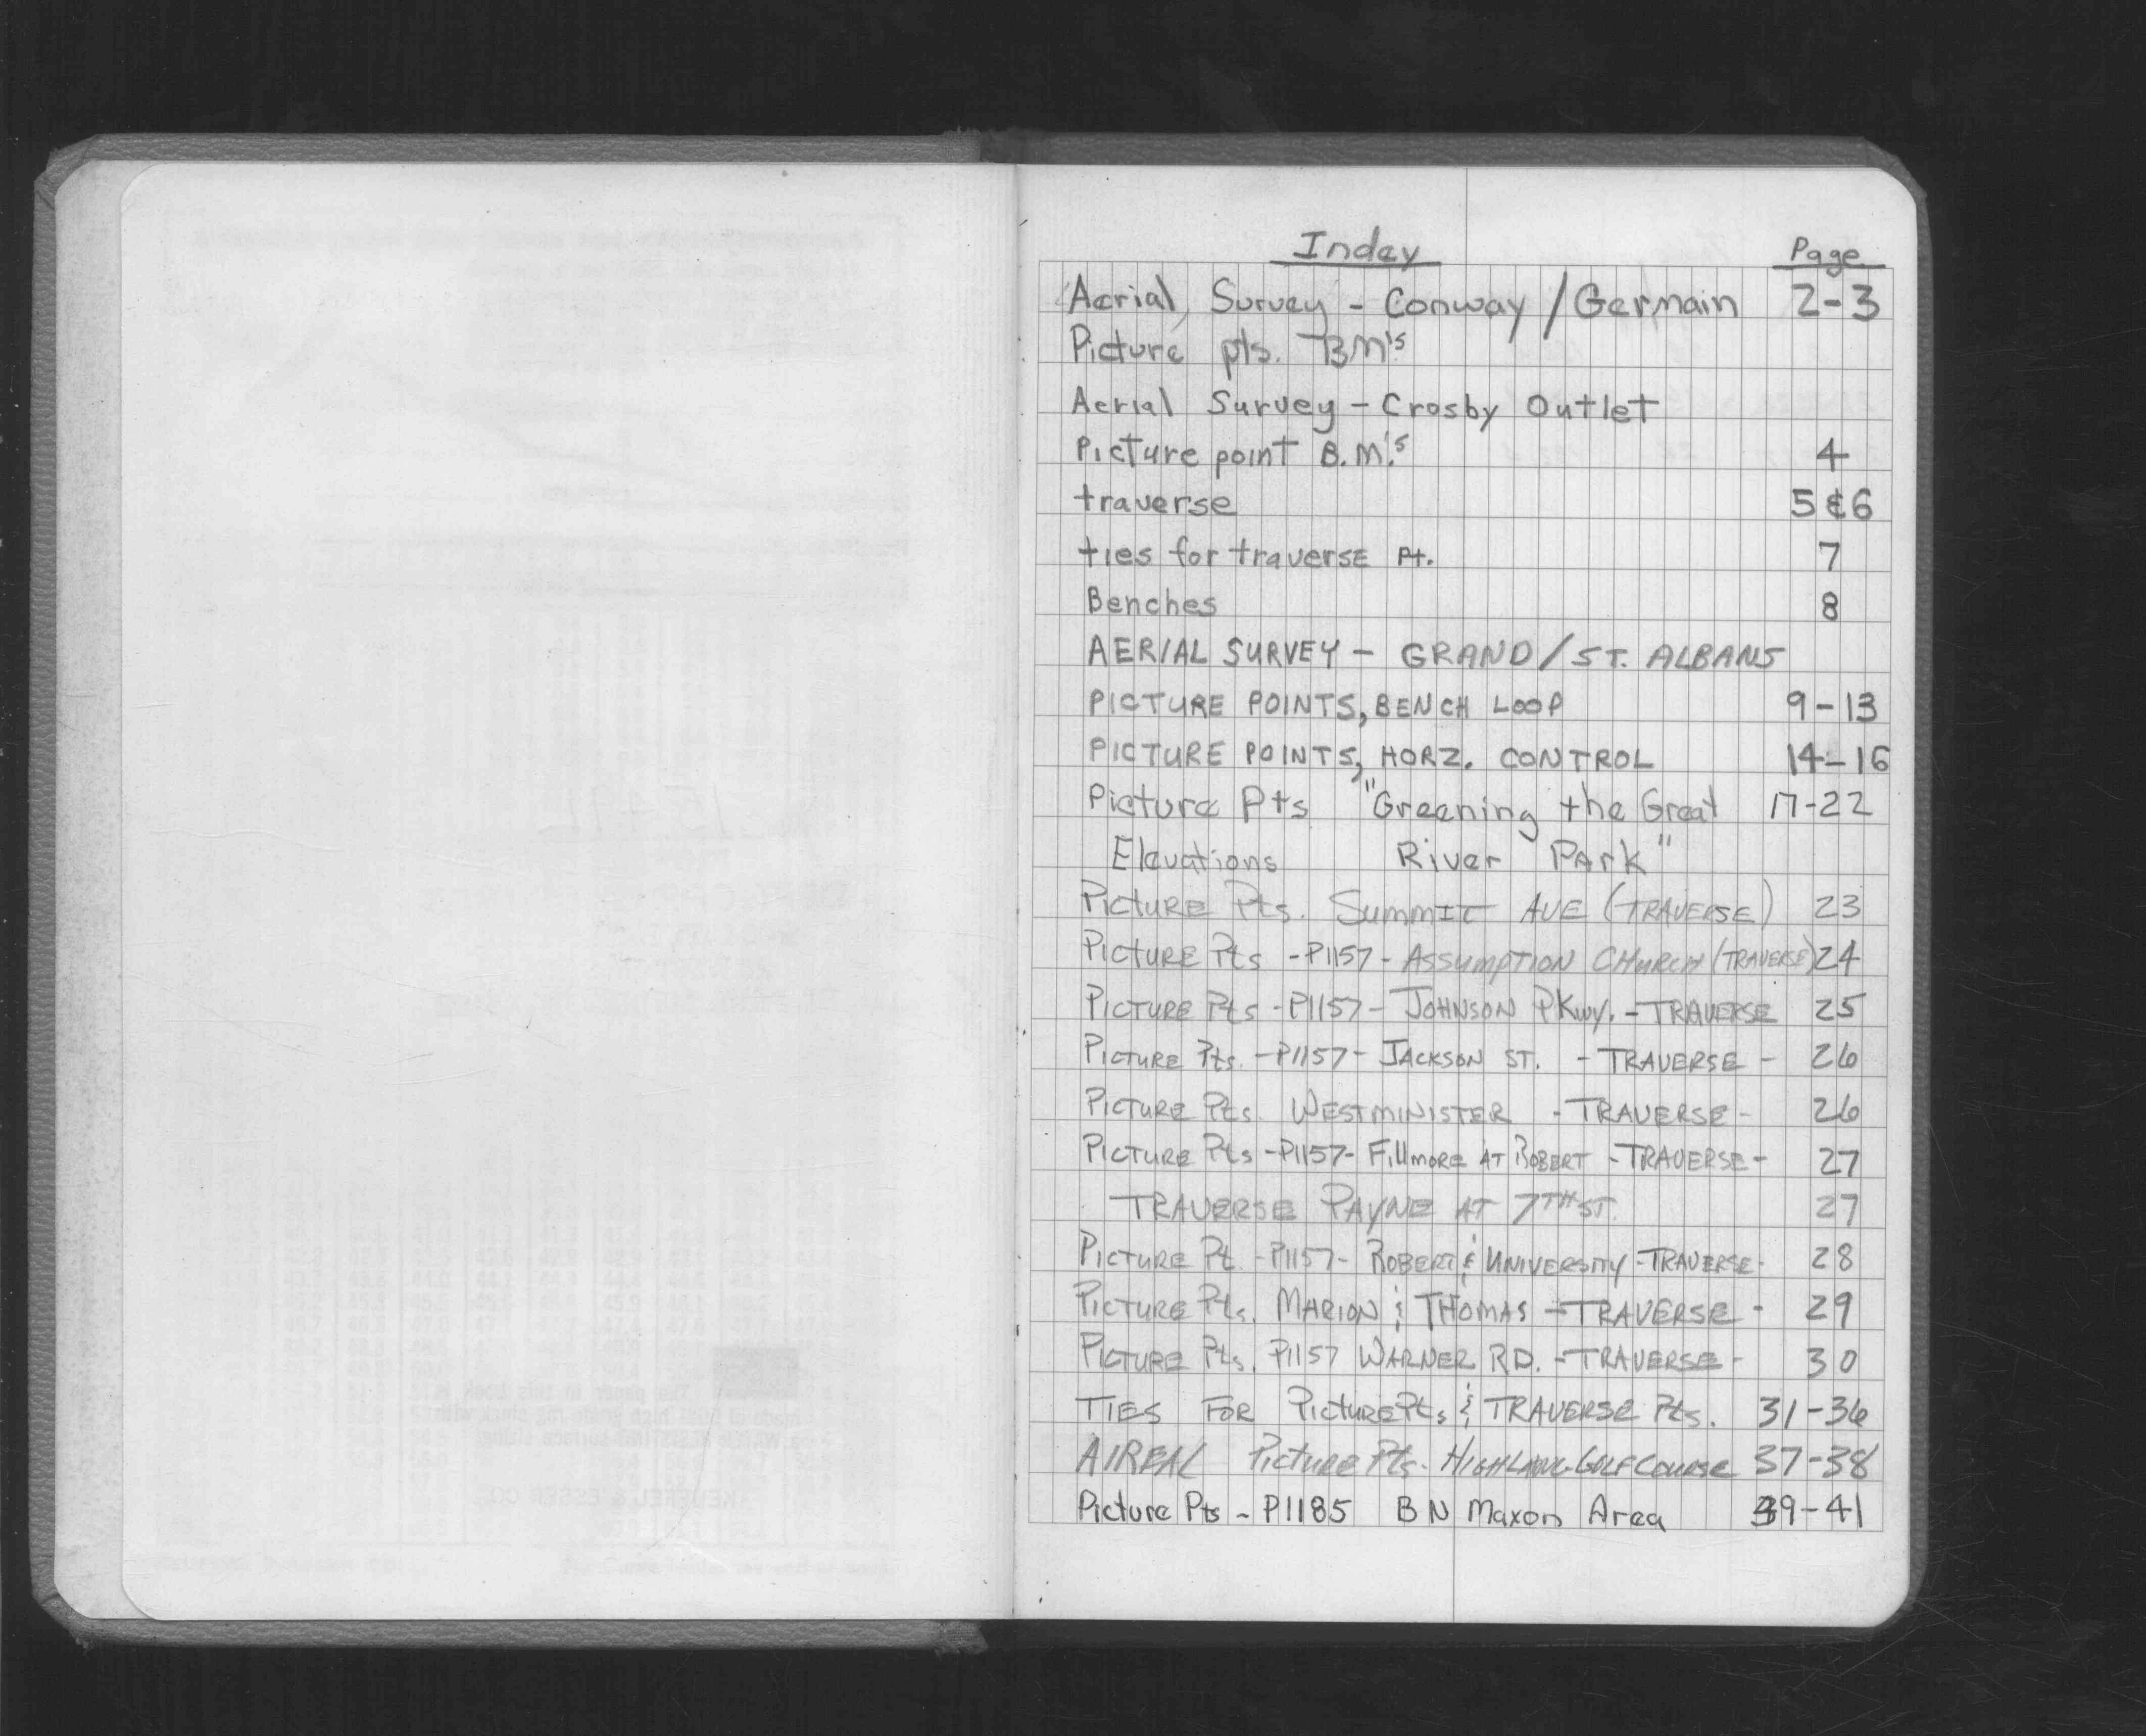 Index Page
Aerial Survey - Conway / Germain 2-3
Picture pts. BM's
Aerial Survey - Crosby Outlet
Picture point B.M.'s 4
traverse 5 & 6
ties for traverse Pt. 7
Benches 8
AERIAL SURVEY - GRAND / ST. ALBANS
PICTURE POINTS, BENCH LOOP 9-13
PICTURE POINTS, HORZ. CONTROL 14-16
Picture Pts "Greening the Great 17-22
Elevations River Park"
Picture Pts. Summit Ave (TRAVERSE) 23
Picture Pts - P1157 - ASSUMPTION CHURCH (TRAVERSE) 24
Picture Pts - P1157 - JOHNSON PKwy. - TRAVERSE 25
Picture Pts. - P1157 - JACKSON ST. - TRAVERSE - 26
Picture Pts. WESTMINISTER - TRAVERSE - 26
Picture Pts - P1157 - Fillmore AT ROBERT - TRAVERSE - 27
TRAVERSE PAYNE AT 7TH ST. 27
Picture Pt. - P1157 - ROBERT & UNIVERSITY - TRAVERSE - 28
Picture Pts. MARION & THOMAS - TRAVERSE - 29
Picture Pts. P1157 WARNER RD. - TRAVERSE - 30
TIES FOR Picture Pts & TRAVERSE Pts. 31-36
AIREAL Picture Pts. HIGHLAND GOLF COURSE 37-38
Picture Pts - P1185 BN Maxon Area 39-41